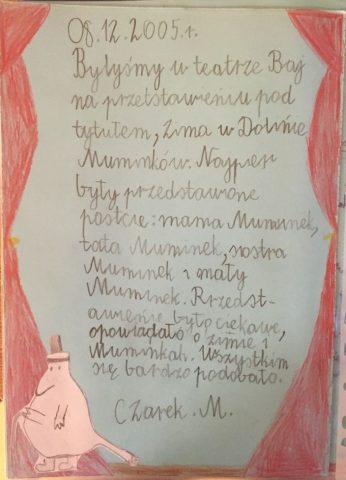 08.12.2005.r.
Byłyśmy w teatrze Baj
na przetstawieniu pod
tytułem, Zima w Dolinie
Muminków. Najpierw
były przedstawone
postcie: mama Mumunek,
tata Muminek, sostra
Muminek i mały
Muminek. Przedst-
awienie było ciekawe,
opowiadało o zimie i
Muminkah. Wszystkim
się bardzo podobało.
Czarek. M.